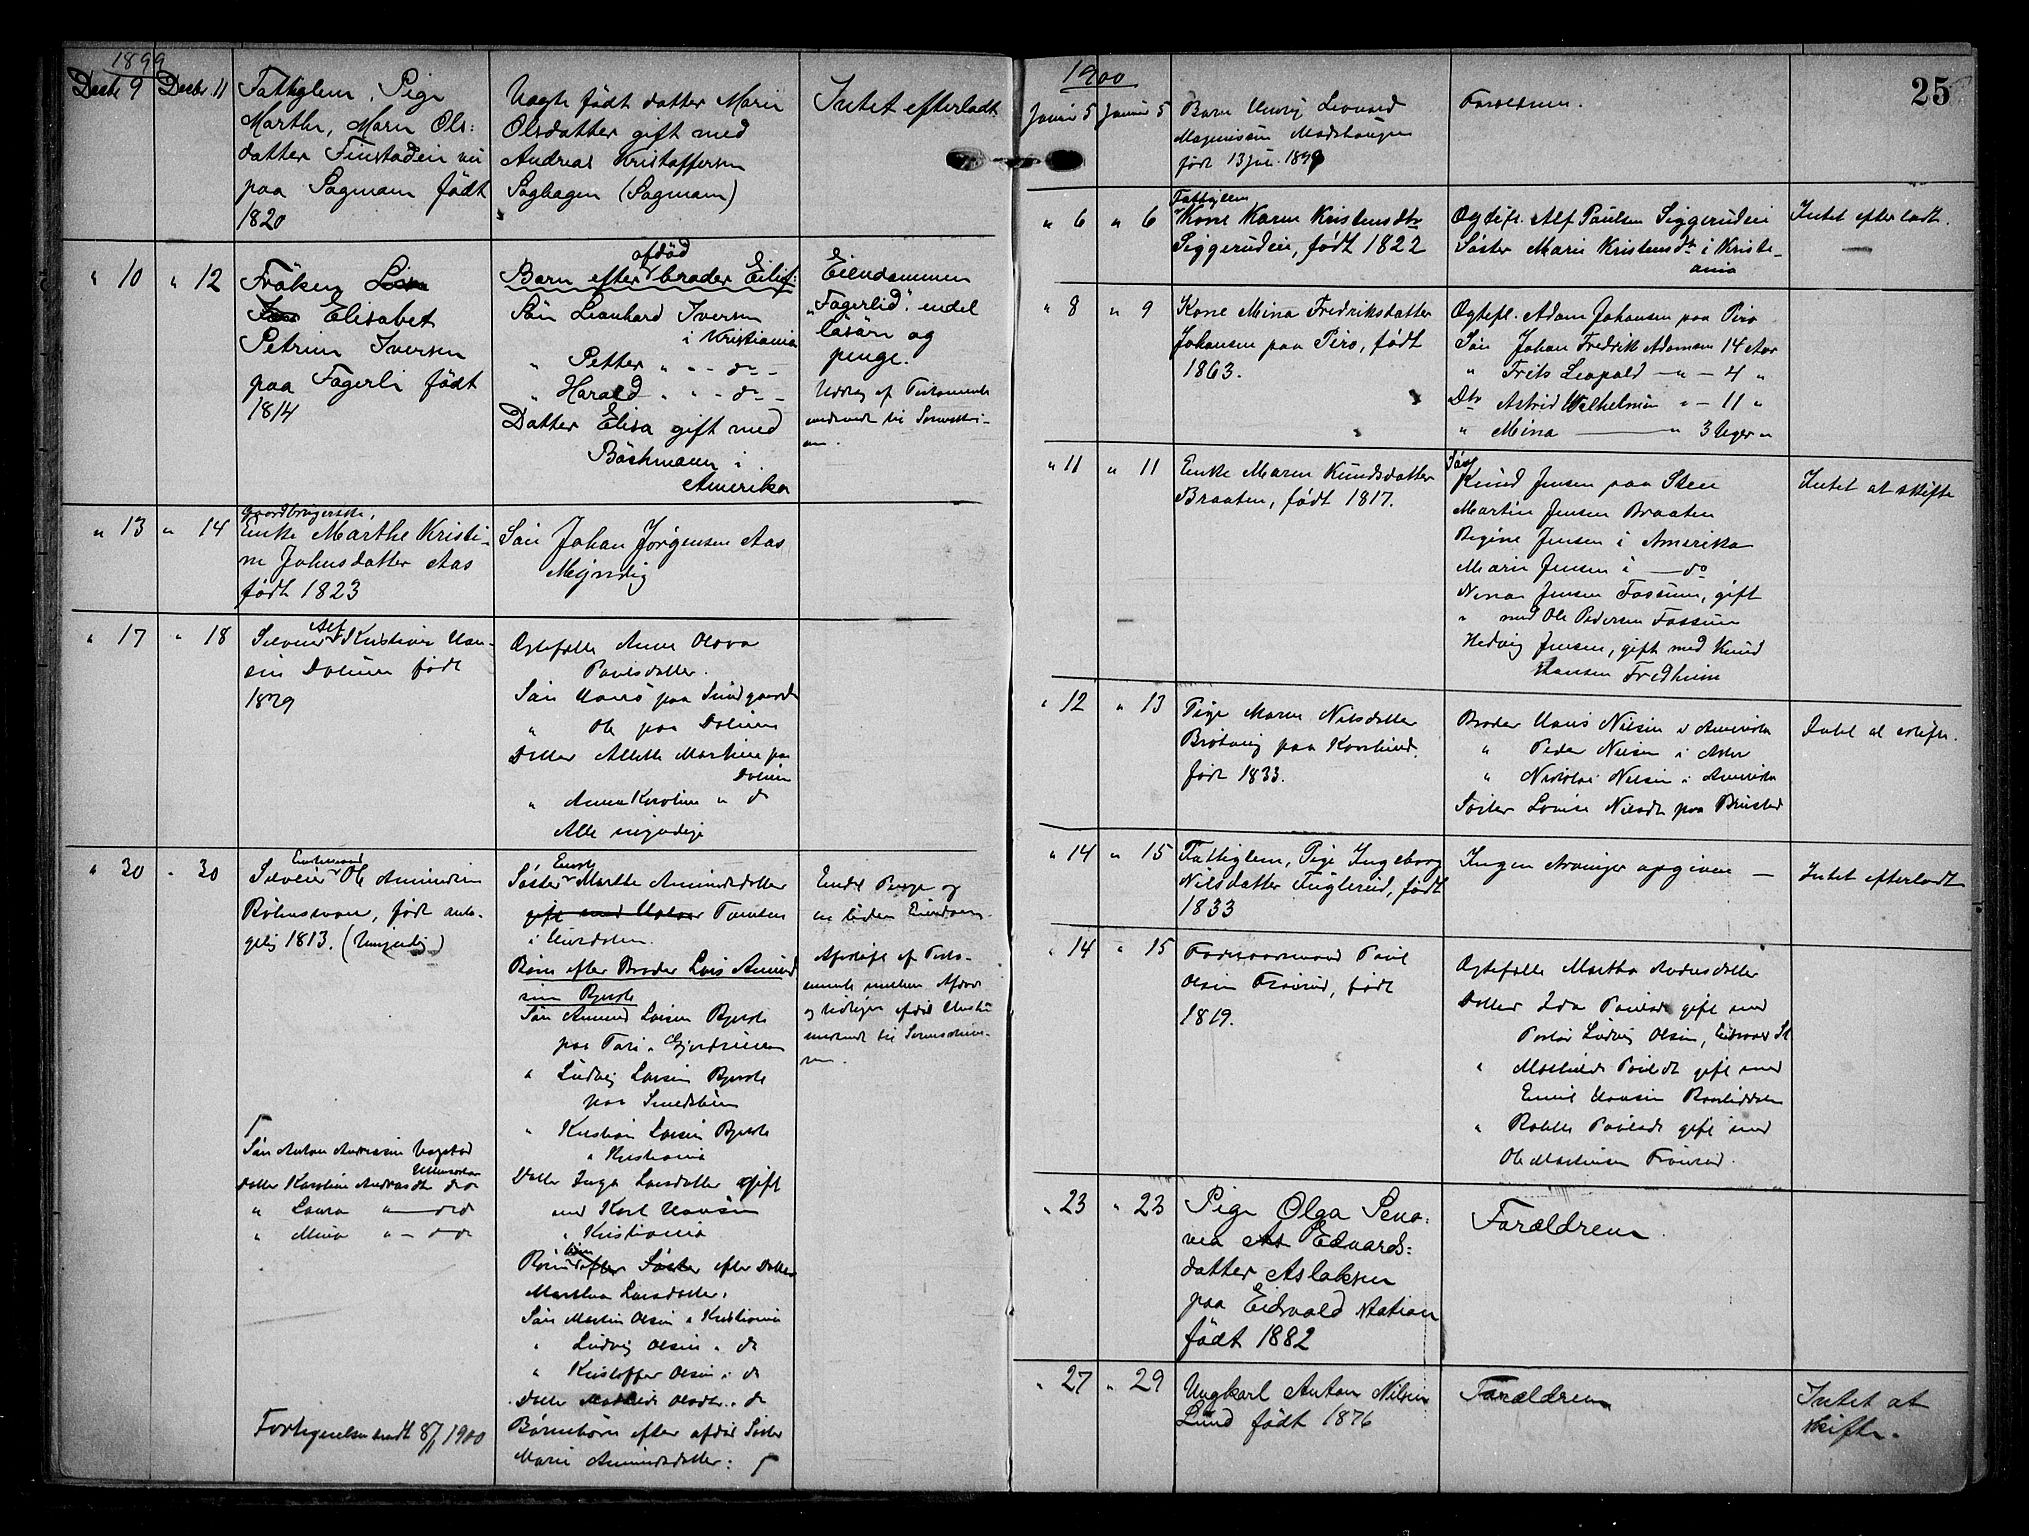 1899
Decbr 9 Decbr 11 Fattiglem, Pige
Marthe, Marie Ols:
datter Finstadeie nu
paa Sagmoen født
1820
Uægte født datter Marie
Olsdatter gift med
Andreas Kristoffersen
Saghagen (Sagmoen)
Intet efterladt
" 10 " 12 Frøken
Elisabet
Petrine Iversen
paa Fagerli født
1814
afdød
Børn efter broder Eilif:
Søn Leonhard Iversen
i Kristiania
" Petter " - do -
" Harald " - do -
Datter Elisa gift med
Böckmann i
Amerika
Eiendommen
"Fagerlid", endel
løsøre og
penge.
Udskrag af Testamente
" 13 " 14 Gaardbrugerske,
Enke Marthe Kristi-
ne Johnsdatter Aas
født 1823
Søn Johan Jørgensen Aas
Myndig
" 17 " 18 Alf
Kristian Han-
sen Dølien født
1829
Ægtefælle Anne Olava
Paulsdatter.
Søn Hans paa Sundgaarden
" Ole paa Dølien
Datter Alette Martine paa
Dølien
" Anna Karoline " do
Alle myndige
" 30 " 30 Enkemand
Ole Amundsen
født anta-
gelig 1813. (Umyndig)
Enke
Søster Marthe Amundsdatter
gift med Tomten
i Hurdalen.
Børn efter Broder Lars Amund
sen Bjerke
Søn Amund Larsen Bjerke
paa
" Ludvig Larsen Bjerke
paa
" Kristian Larsen Bjerke
i Kristiania
Datter Inga Larsdatter gift
med Karl Hansen
i Kristiania
Børn efter Søster efter Datter
Marthea Larsdatter.
Søn Martin Olsen i Kristiania
" Ludvig Olsen i do
" Kristoffer Olsen i do
Datter Mathilde Olsdtr. i do
Børnebørn efter afdød Søster
Marie Amundsdatter:
Endel Penge og
en liden Eiendom.
Afskrift af Testa-
mente mellem Afdøde
og tidligere afdød Hustru
Søn Anton Andersen
Ullensaker
Datter Karoline Andreasdtr do
" Laura " — do
" Mina " — do
Fortegnelse sendt 8/1 1900
1900
25
Januar 5 Januar 5 Barn Henry Leonard
Magnussen Madshaugen
født 13 jul. 1899
Forældrene.
" 6 " 6 Fattiglem
Kone Karen Kristensdtr
Siggerudeie, født 1822
Ægtefl. Alf Paulsen Siggerudeie
Søster Marie Kristensdtr i Kristi-
ania
Intet efterladt.
" 8 " 9 Kone Mina Fredriksdatter
Johansen paa Piro, født
1863.
Ægtefl. Adam Johansen paa Piro
Søn Johan Fredrik Adamsen 14 Aar
" Frits Leopold — " — 4 "
Dtr Astrid Wilhelmine " — 11 "
" Mina — " 3 Uger "
" 11 " 11 Enke Maren Knudsdatter
Braaten, født 1817.
Søn
Knud Jensen paa Steen
Martin Jensen Braaten
Regine Jensen i Amerika
Marie Jensen i — do
Nina Jensen Fossum, gift
" med Ole Pedersen Fossum
Hedvig Jensen, gift med Knud
Hansen Fredheim
Intet at skifte
" 12 " 13 Pige Maren Nilsdatter
født 1833.
Broder Hans Nilsen i Amerika
" Peder Nilsen i Asker
" Nikolai Nilsen i Amerika
Søster Lovise Nilsdtr paa Brustad
Intet at skifte.
" 14 " 15 Fattiglem, Pige Ingeborg
Nilsdatter Fuglerud, født
1833
Ingen Arvinger opgiven —
Intet efterladt
" 14 " 15 Paul
Olsen født
1819.
Ægtefælle Martha Andersdatter
Datter Ida Paulsdtr gift med
Portør Ludvig Olsen, Eidsvold St
" Mathilde Paulsdtr gift med
Emil Hansen
" Paulsdtr gift med
Ole Martinsen
" 23 " 23 Pige Olga Seno:
via Edvards:
datter Aslaksen
paa Eidsvold station
født 1882
Forældrene
" 27 " 29 Ungkarl Anton Nilsen
Lund født 1876
Forældrene
Intet at
skifte.